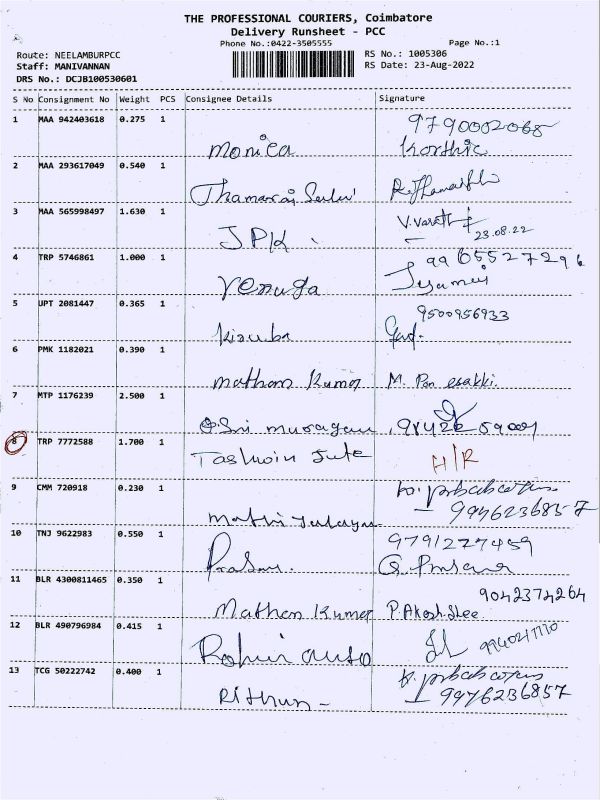 THE PROFESSIONAL COURIERS, Coimbatore
Delivery Runsheet - PCC
Phone No.:0422-3505555
Page No.:1
Route: NEELAMBURPCC
RS No.: 1005306
Staff: MANIVANNAN
RS Date: 23-Aug-2022
DRS No.: DCJB100530601
S No Consignment No Weight PCS Consignee Details Signature
1 MAA 942403618 0.275 1 9790002068
Monica Karthic
2 MAA 293617049 0.540 1
Thamarai Selvi
3 MAA 565998497 1.630 1
JPK 23.08.22
4 TRP 5746861 1.000 1 9965527296
Venuga
5 UPT 2081447 0.365 1 9500956933
Kiruba
6 PMK 1182021 0.390 1
Mathan Kumar M. Pon esakki
7 MTP 1176239 2.500 1
O.Sri Murugan
8 TRP 7772588 1.700 1
Tashwin Jute H/R
9 CMM 720918 0.230 1
Mathi 9976236857
10 TNJ 9622983 0.550 1 9791277459
11 BLR 4300811465 0.350 1 9042374264
Mathan Kumar P.Akash
12 BLR 490796984 0.415 1
Rohini auto
13 TCG 50222742 0.400 1
Rithun 9976236857